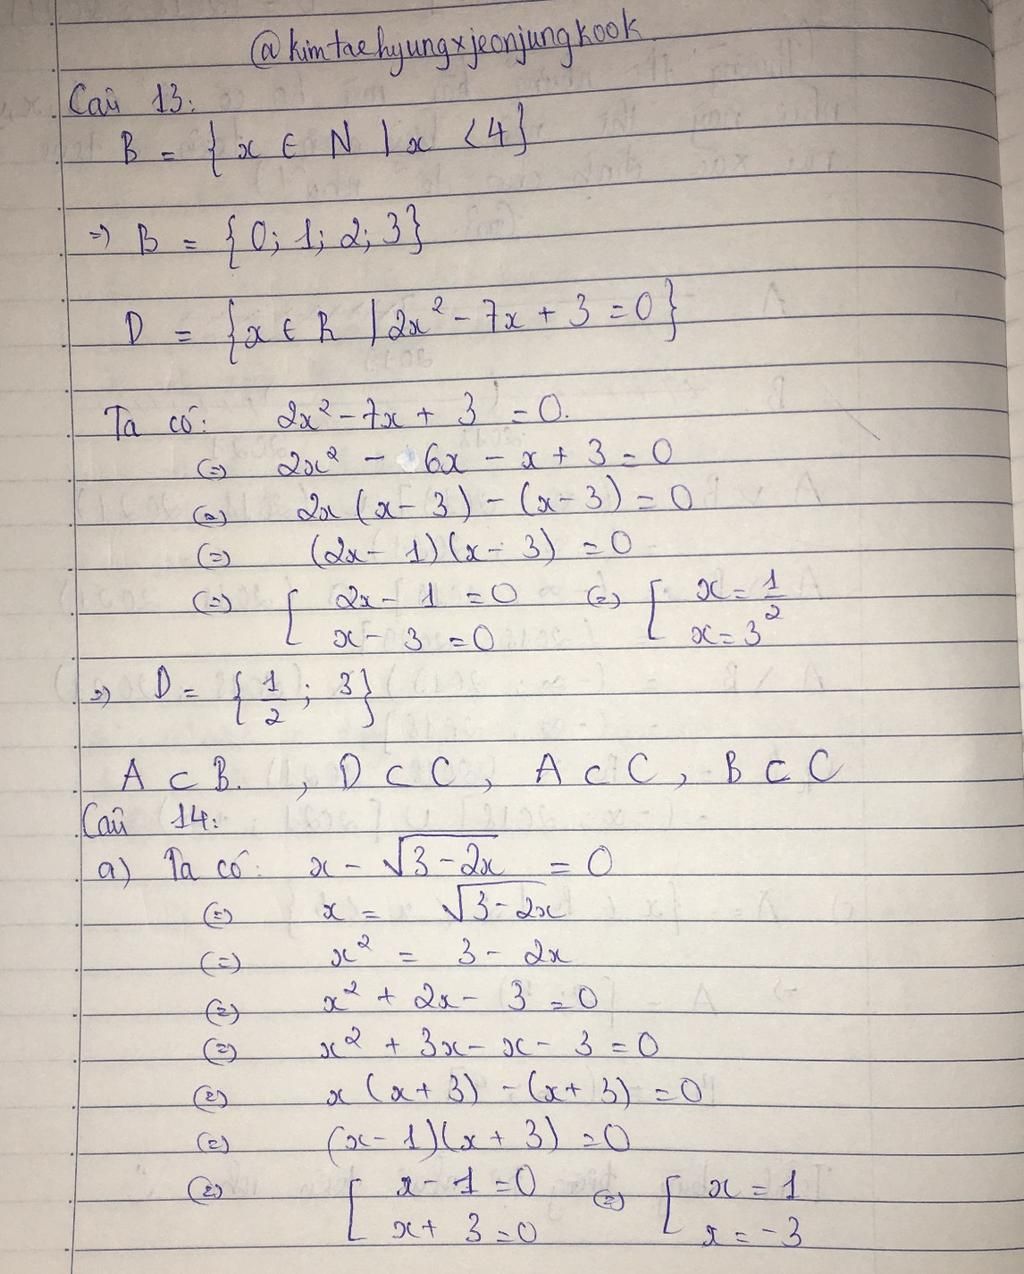 @kimtaehyungxjeonjungkook
Câu 13:
B = { x ∈ N | x < 4 }
=> B = { 0; 1; 2; 3 }
D = { x ∈ R | 2x² - 7x + 3 = 0 }
Ta có: 2x² - 7x + 3 = 0.
(=) 2x² - 6x - x + 3 = 0
(=) 2x (x - 3) - (x - 3) = 0
(=) (2x - 1)(x - 3) = 0
(=) [ 2x - 1 = 0 (=) [ x = 1/2
x - 3 = 0 x = 3
=> D = { 1/2 ; 3 }
A ⊂ B. , D ⊂ C , A ⊂ C , B ⊂ C
Câu 14:
a) Ta có: x - √(3 - 2x) = 0
(=) x = √(3 - 2x)
(=) x² = 3 - 2x
(=) x² + 2x - 3 = 0
(=) x² + 3x - x - 3 = 0
(=) x (x + 3) - (x + 3) = 0
(=) (x - 1)(x + 3) = 0
(=) [ x - 1 = 0 (=) [ x = 1
x + 3 = 0 x = -3